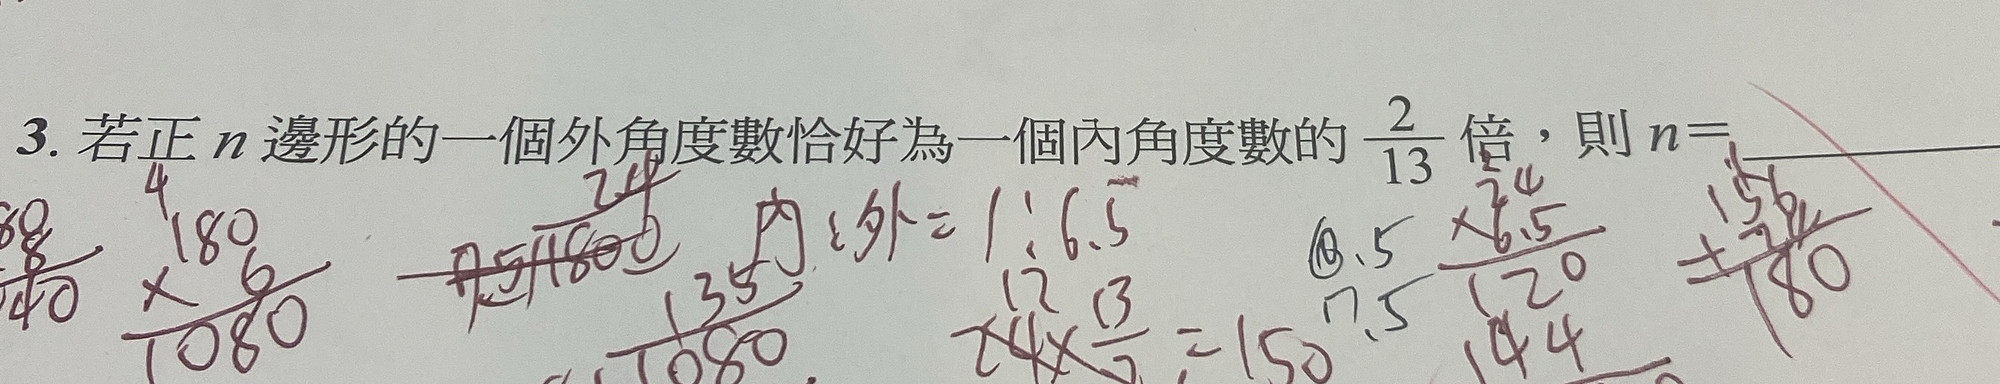 3. 若正 n 邊形的一個外角度數恰好為一個內角度數的 2/13 倍,則 n=
4
180
× 6
1080
24
7.5 1800
135
1080
內:外=1:6.5
12
24×13/2=150
6.5
7.5
24
×6.5
120
144
156
+24
180